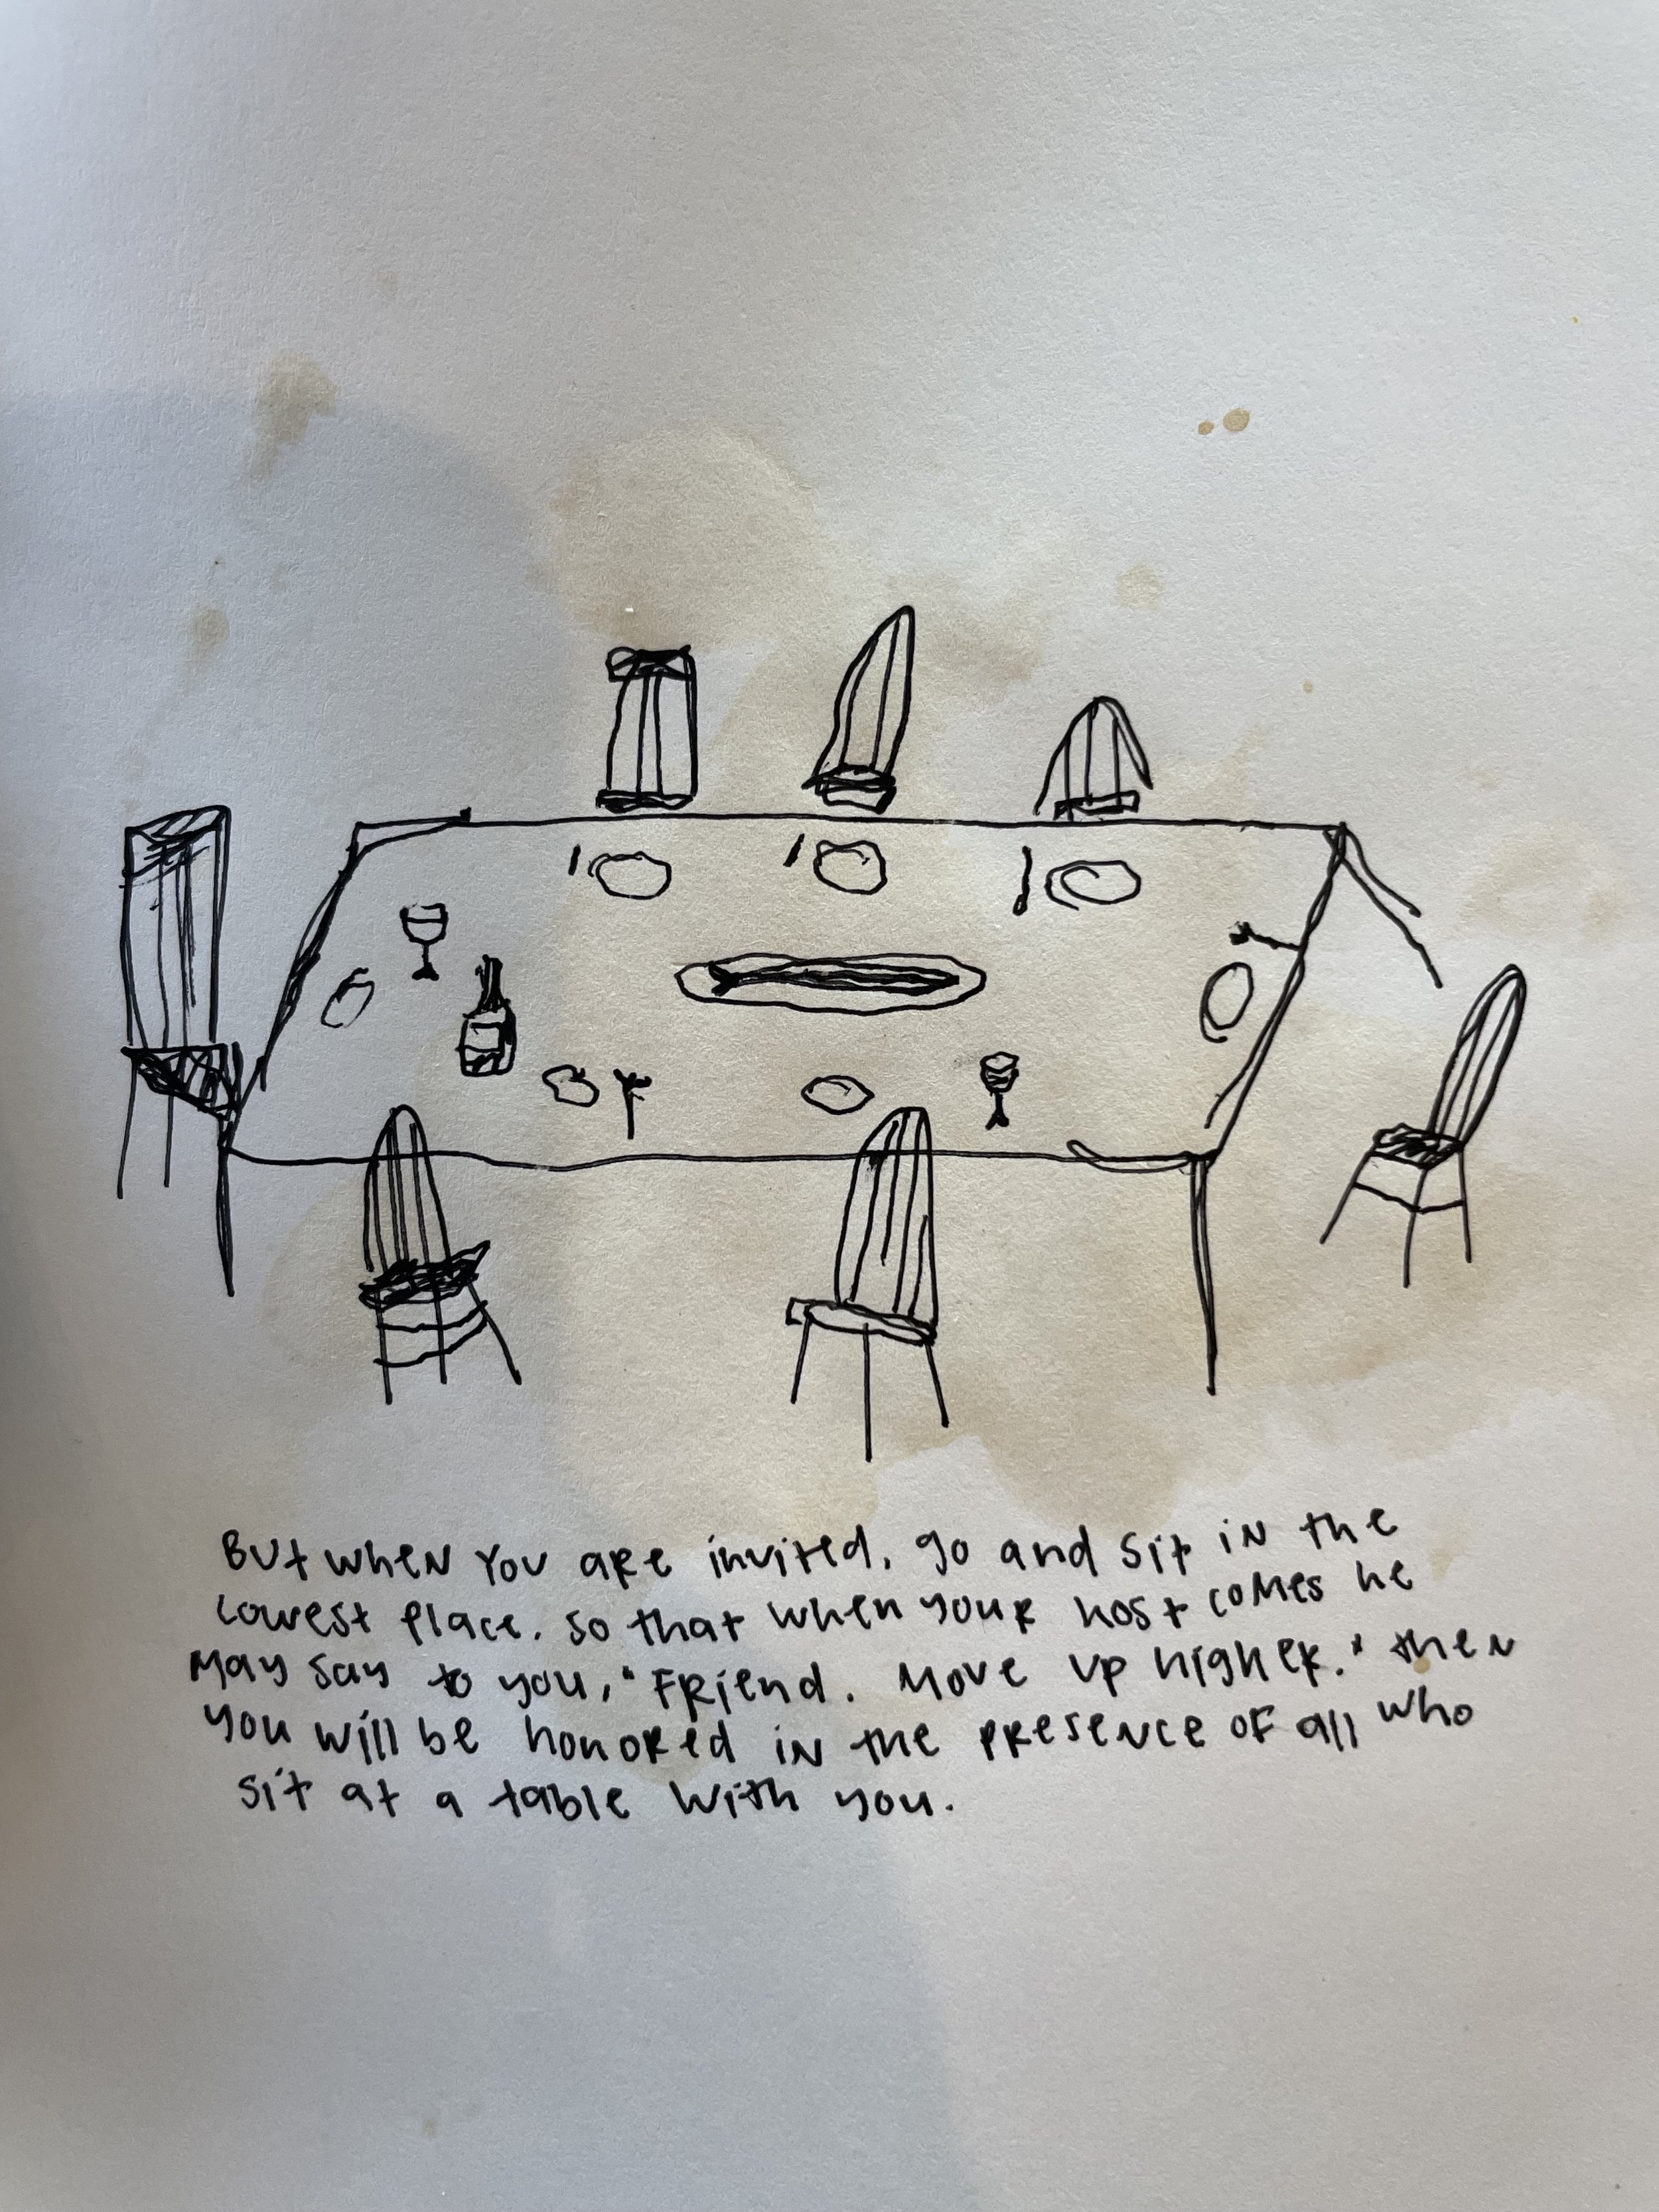 But when you are invited, go and sit in the
lowest place. so that when your host comes he
may say to you, "Friend. Move up higher." then
you will be honored in the presence of all who
sit at a table with you.